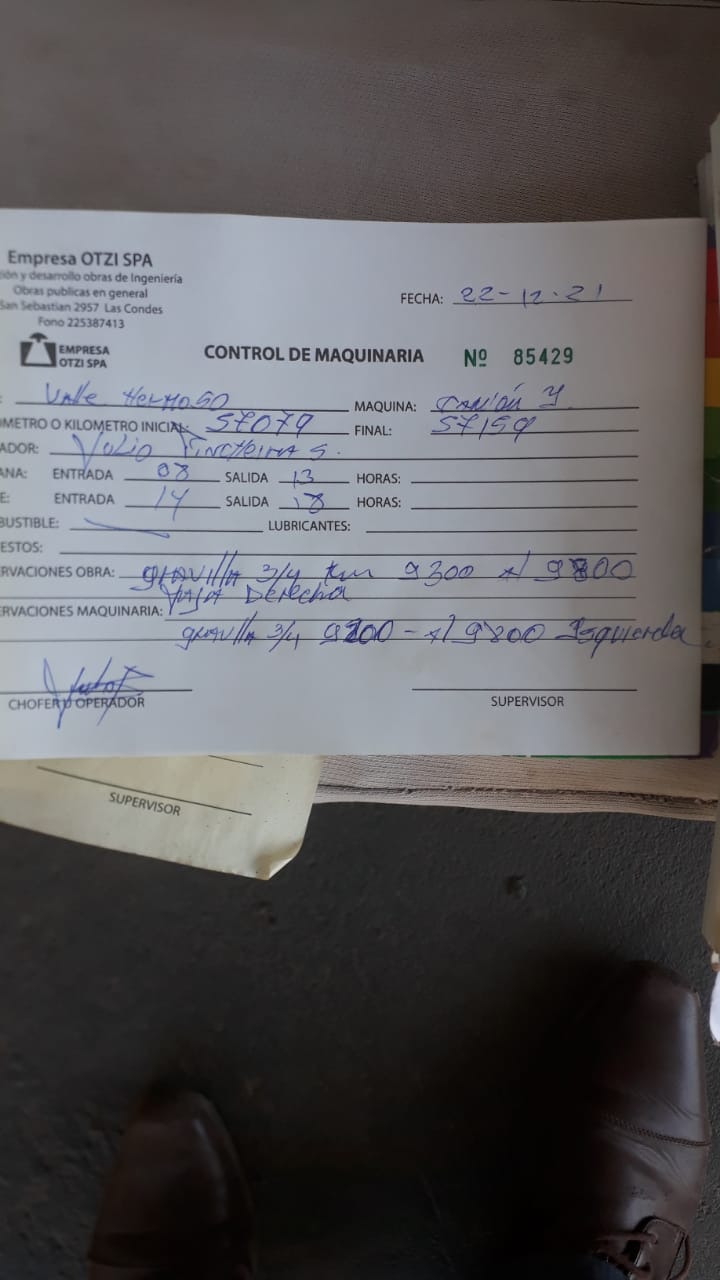 Empresa OTZI SPA
ión y desarrollo obras de Ingeniería
Obras publicas en general
San Sebastian 2957 Las Condes
Fono 225387413
EMPRESA
OTZI SPA
FECHA: 22-12-21
CONTROL DE MAQUINARIA Nº 85429
: Valle Hermoso MAQUINA:
OMETRO O KILOMETRO INICIAL: 57079 FINAL: 57159
ADOR: S.
ANA: ENTRADA 08 SALIDA 13 HORAS:
E: ENTRADA 14 SALIDA 18 HORAS:
BUSTIBLE: LUBRICANTES:
ESTOS:
RVACIONES OBRA: gravilla 3/4 km 9300 al 9800
Derecha
RVACIONES MAQUINARIA:
gravilla 3/4 - al 9800 Izquierda
CHOFER U OPERADOR
SUPERVISOR
SUPERVISOR